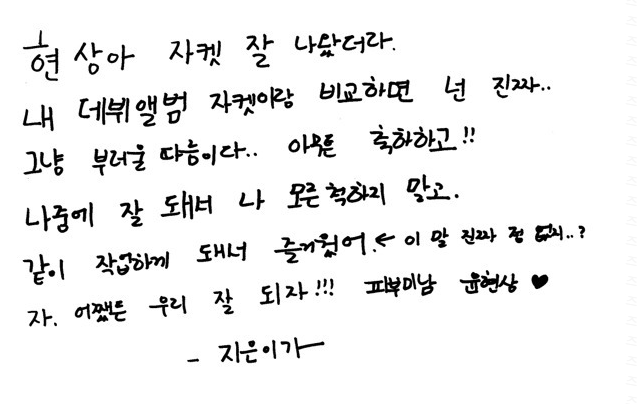 현상아 자켓 잘 나왔더라.
내 데뷔앨범 자켓이랑 비교하면 넌 진짜..
그냥 부러울 따름이다.. 아무튼 축하하고!!
나중에 잘 돼서 나 모른척하지 말고.
같이 작업하게 돼서 즐거웠어.← 이 말 진짜 정 없지..?
자. 어쨌든 우리 잘 되자!!! 피부미남 윤현상 ♥
- 지은이가 -